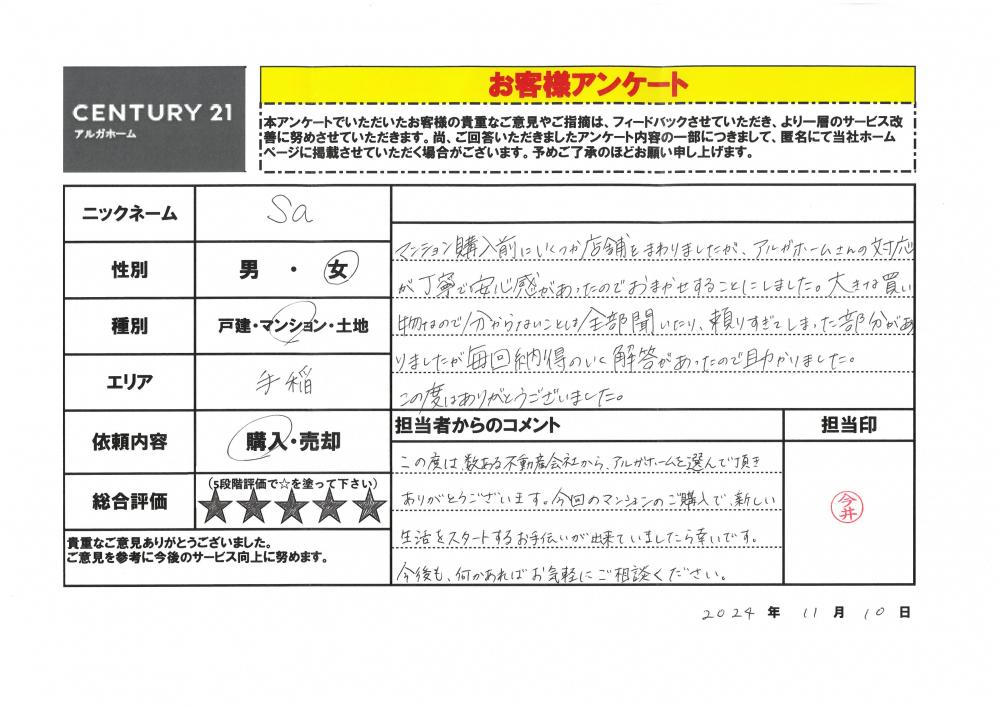 お客様アンケート
CENTURY 21
アルガホーム
本アンケートでいただいたお客様の貴重なご意見やご指摘は、フィードバックさせていただき、より一層のサービス改
善に努めさせていただきます。尚、ご回答いただきましたアンケート内容の一部につきまして、匿名にて当社ホーム
ページに掲載させていただく場合がございます。予めご了承のほどお願い申し上げます。
ニックネーム
Sa
性別
男 ・ 女
種別
戸建・マンション・土地
エリア
手稲
依頼内容
購入・売却
総合評価
(5段階評価で☆を塗って下さい)
★★★★★
貴重なご意見ありがとうございました。
ご意見を参考に今後のサービス向上に努めます。
マンション購入前にいくつか店舗をまわりましたが、アルガホームさんの対応
が丁寧で安心感があったのでおまかせすることにしました。大きな買い
物なので分からないことは全部聞いたり、頼りすぎてしまった部分があ
りましたが毎回納得のいく解答があったので助かりました。
この度はありがとうございました。
担当者からのコメント
担当印
この度は数ある不動産会社から、アルガホームを選んで頂き
ありがとうございます。今回のマンションのご購入で、新しい
生活をスタートするお手伝いが出来ていましたら幸いです。
今後も、何かあればお気軽にご相談ください。
今井
2024 年 11 月 10 日